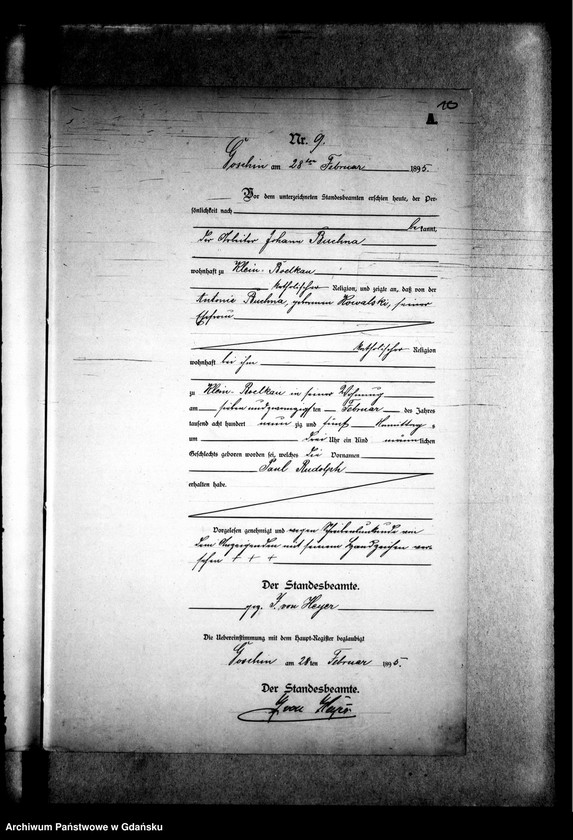 10
A.
Nr. 9.
Goschin am 28ten Februar 1895.
Vor dem unterzeichneten Standesbeamten erschien heute, der Per-
sönlichkeit nach
bekannt,
der Arbeiter Johann Buchna
wohnhaft zu Klein-Roelkau
katholischer Religion, und zeigte an, daß von der
Antonie Buchna, geborenen Kowalski, seiner
Ehefrau
katholischer Religion
wohnhaft bei ihm
zu Klein-Roelkau in seiner Wohnung
am sieben undzwanzigsten Februar des Jahres
tausend acht hundert neun zig und fünf Nachmittag s
um drei Uhr ein Kind männlichen
Geschlechts geboren worden sei, welches die Vornamen
Paul Rudolph
erhalten habe.
Vorgelesen genehmigt und wegen Schreibensunkunde von
dem Anzeigenden mit seinem Handzeichen ver-
sehen + + +
Der Standesbeamte.
gez. J. von Heyer
Die Uebereinstimmung mit dem Haupt-Register beglaubigt
Goschin am 28ten Februar 1895.
Der Standesbeamte.
J von Heyer
Archiwum Państwowe w Gdańsku